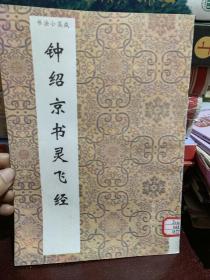 书法小集成
钟绍京书灵飞经